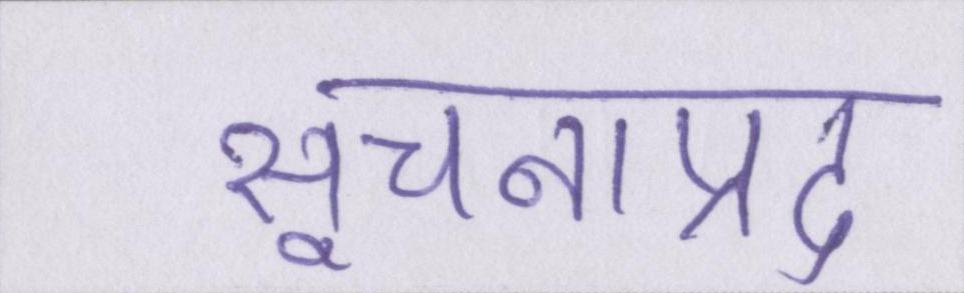 सूचनाप्रद